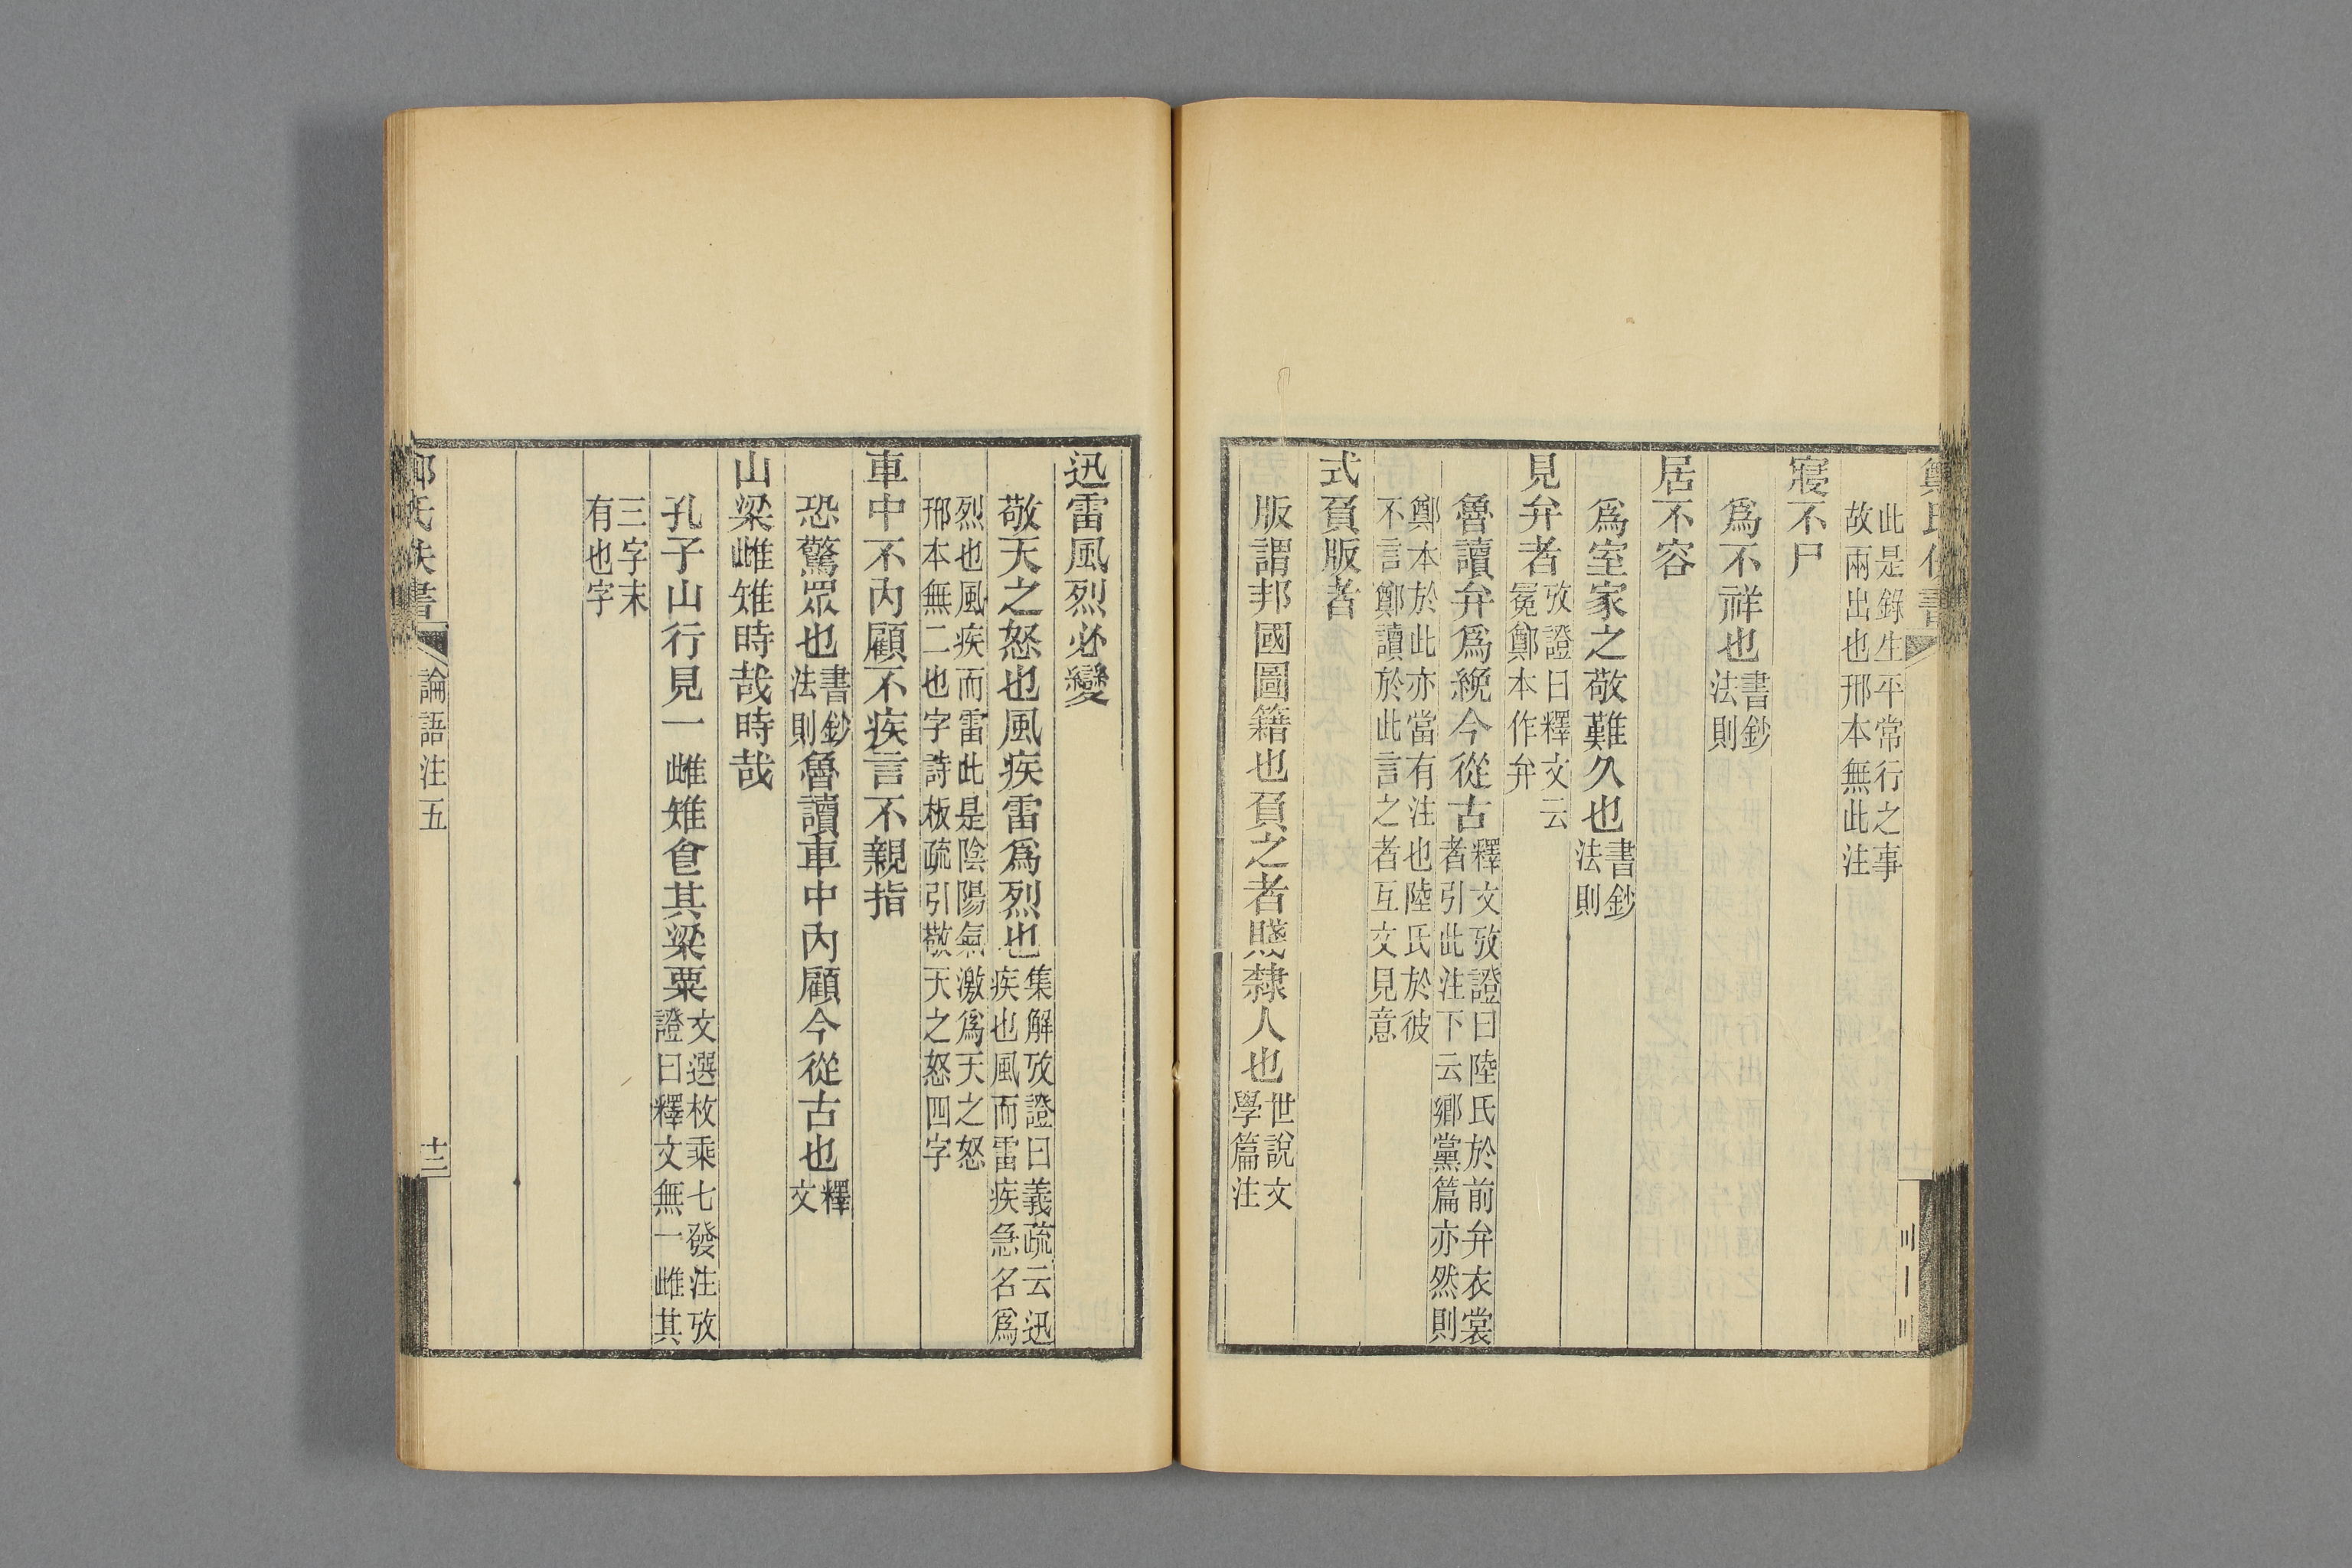 此是錄生平常行之事
故兩出也邢本無此注
寢不尸
爲不祥也書鈔
法則
居不容
爲室家之敬難久也書鈔
法則
見弁者攷證曰釋文云
冕鄭本作弁
魯讀弁爲絻今從古釋文攷證曰陸氏於前弁衣裳
者引此注下云鄉黨篇亦然則
鄭本於此亦當有注也陸氏於彼
不言鄭讀於此言之者互文見意
式負版者
版謂邦國圖籍也負之者賤隸人也世說文
學篇注
迅雷風烈必變
敬天之怒也風疾雷爲烈也集解攷證曰義疏云迅
疾也風而雷疾急名爲
烈也風疾而雷此是陰陽氣激爲天之怒
邢本無二也字詩板疏引敬天之怒四字
車中不內顧不疾言不親指
恐驚眾也書鈔
法則魯讀車中內顧今從古也釋
文
山梁雌雉時哉時哉
孔子山行見一雌雉食其粱粟文選枚乘七發注攷
證曰釋文無一雌其
三字末
有也字
鄭氏佚書
論語注五
十三